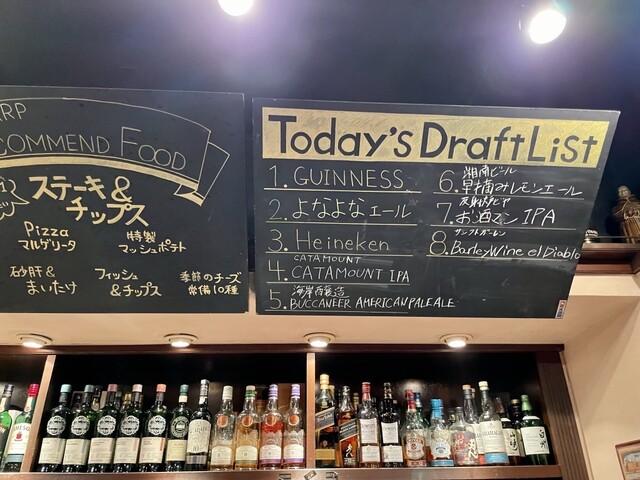 ARP
COMMEND FOOD
ステーキ&
チップス
Pizza
マルゲリータ
特製
マッシュポテト
砂肝&
まいたけ
フィッシュ
&チップス
季節のチーズ
常備10種
Today's Draft List
1. GUINNESS
2. よなよなエール
3. Heineken
CATAMOUNT
4. CATAMOUNT IPA
5. BUCCANEER AMERICAN PALE ALE
湘南ビール
6. 早摘みレモンエール
7. お酒マン IPA
サンクトガーレン
8. Barley Wine el Diablo